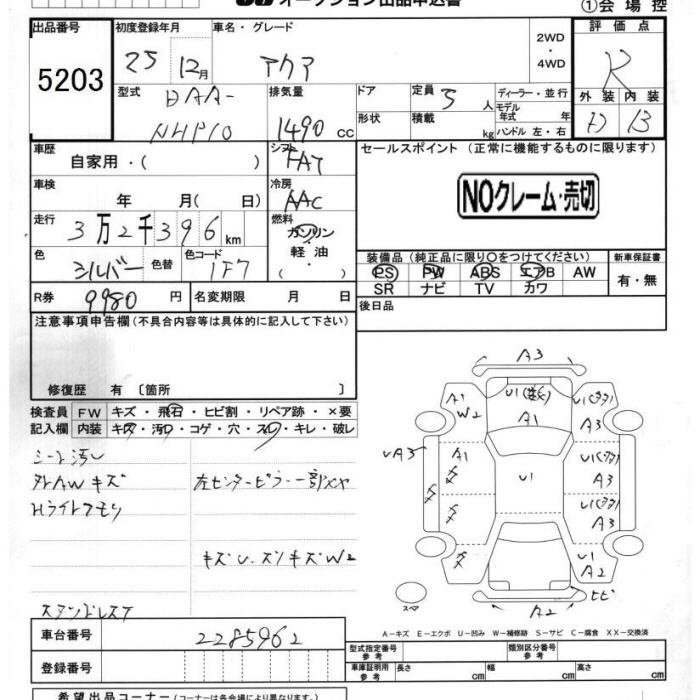 オークション出品申込書
①会場控
出品番号
5203
初度登録年月
25 12月
車名・グレード
アクア
2WD
・
4WD
評価点
R
外装 内装
D B
型式
DAA-
NHP10
排気量
1490 cc
ドア
形状
定員 5 人
積載 kg
ディーラー・並行
モデル年式 年
ハンドル 左・右
車歴
自家用・( )
シフト
FAT
セールスポイント (正常に機能するものに限ります)
NOクレーム・売切
車検
年 月( 日)
冷房
AAC
走行
3万2千396km
燃料
ガソリン
・
軽油
( ・ )
色
シルバー
色替
色コード
1F7
装備品 (純正品に限り○をつけてください)
PS PW ABS エアB AW
SR ナビ TV カワ
新車保証書
有・無
R券 9980円
名変期限 月 日
後日品
注意事項申告欄 (不具合内容等は具体的に記入して下さい)
修復歴 有 〔箇所 〕
検査員記入欄
FW キズ・飛石・ヒビ割・リペア跡・×要
内装 キズ・汚れ・コゲ・穴・スレ・キレ・破レ
シート汚レ
外AWキズ
Hライトクモリ
左センターピラー一部XX
キズU.ズリキズW2
スタンドレスT
A3
A1
W2
A1
U1
A3
A3
A3
U1
A2
ヒビ
A2
スペア
A－キズ E－エクボ U－凹み W－補修跡 S－サビ C－腐食 XX－交換済
車台番号 2285962
登録番号
型式指定番号 参考
類別区分番号 参考
車庫証明用 参考 長さ cm 幅 cm 高さ cm
希望出品コーナー (コーナーは各会場により異なります。)